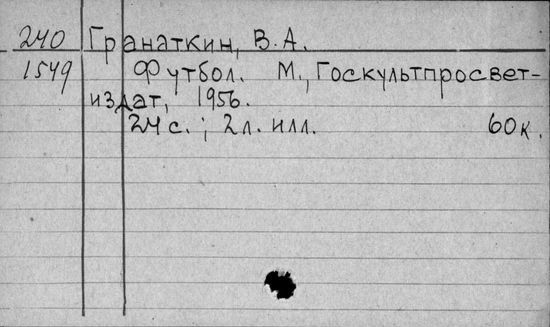 240 Гранаткин, В. А.
1549 Футбол. М., Госкультпросвет-
издат, 1956.
24 с.; 2 л. илл. 60 к.